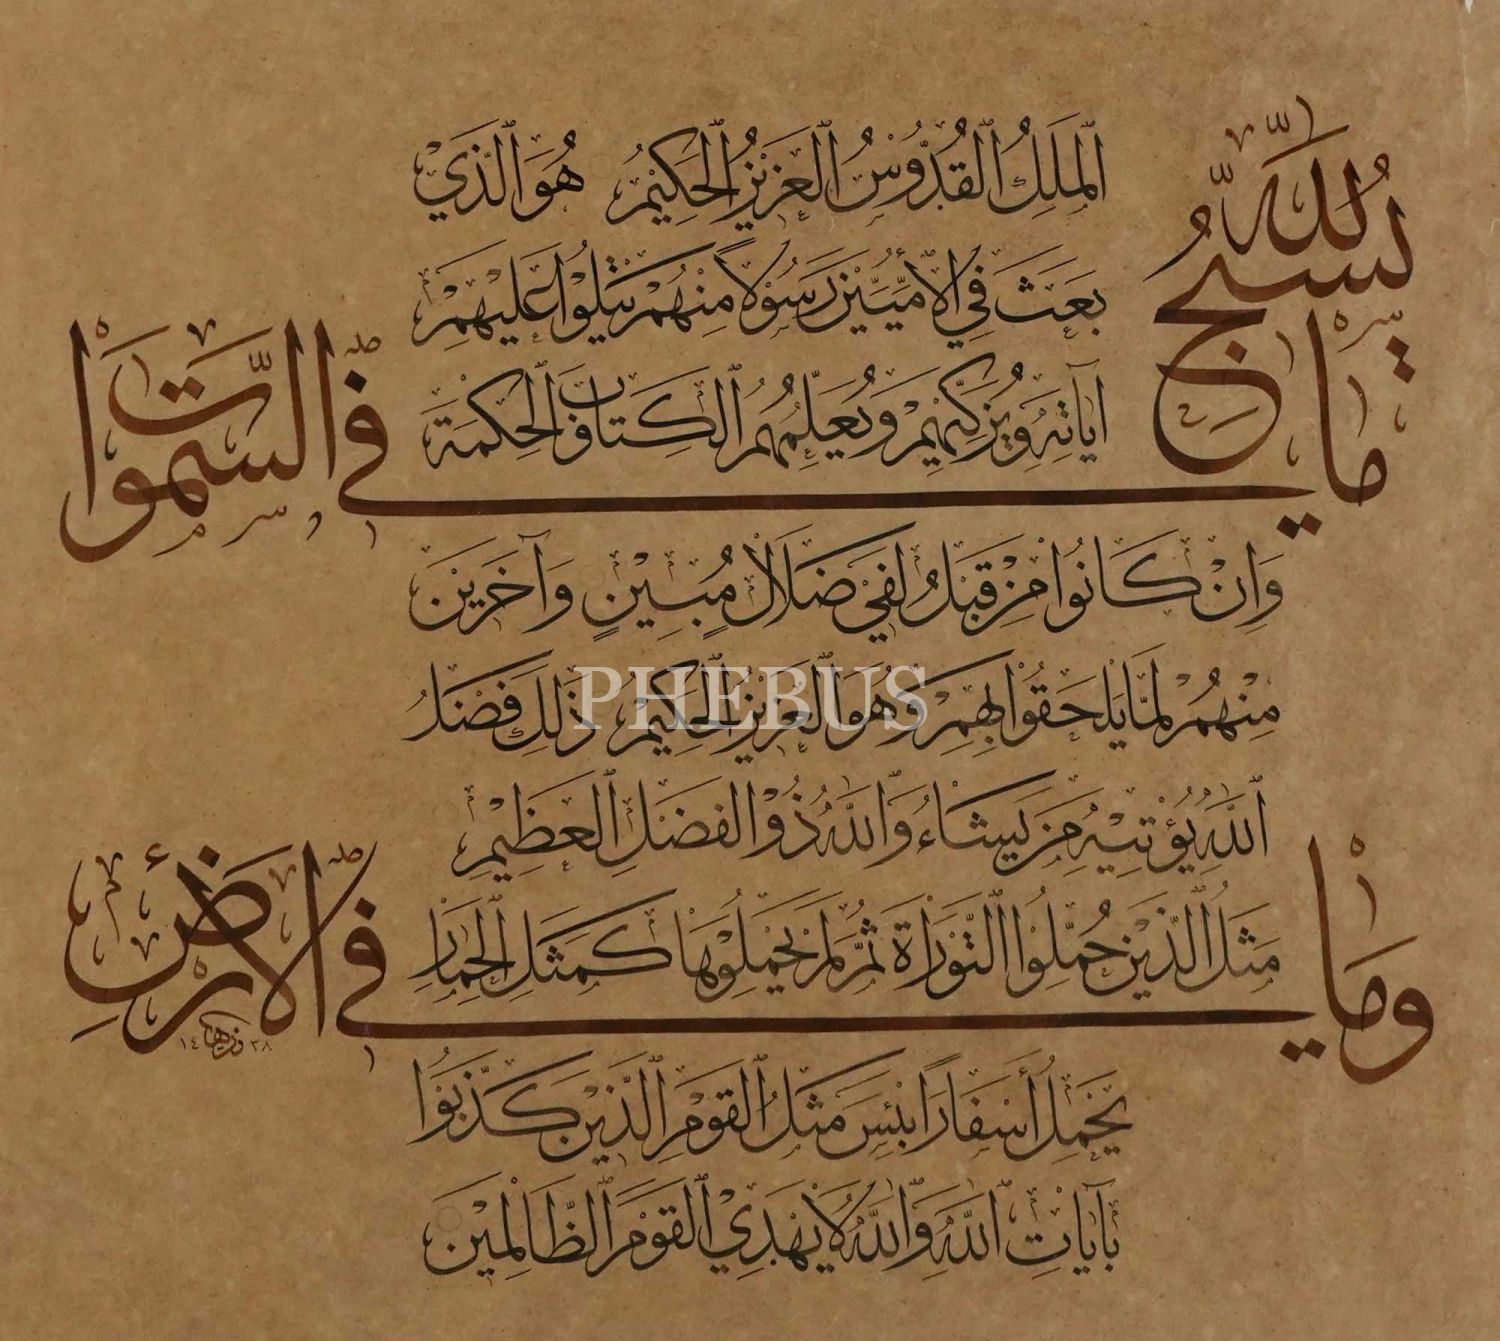 يُسَبِّحُ لِلَّهِ مَا فِي السَّمَوَاتِ
وَمَا فِي الْأَرْضِ
ٱلْمَلِكِ ٱلْقُدُّوْسِ ٱلْعَزِيْزِ ٱلْحَكِيْمِ هُوَ ٱلَّذِي
بَعَثَ فِي الْأُمِّيِّيْنَ رَسُوْلًا مِنْهُمْ يَتْلُوْا عَلَيْهِمْ
آيَاتِهِ وَيُزَكِّيْهِمْ وَيُعَلِّمُهُمُ ٱلْكِتَابَ وَٱلْحِكْمَةَ
وَإِنْ كَانُوْا مِنْ قَبْلُ لَفِيْ ضَلَالٍ مُبِيْنٍ وَآخَرِيْنَ
مِنْهُمْ لَمَّا يَلْحَقُوْا بِهِمْ وَهُوَ ٱلْعَزِيْزُ ٱلْحَكِيْمُ ذَلِكَ فَضْلُ
ٱللَّهِ يُؤْتِيْهِ مَنْ يَشَاءُ وَٱللَّهُ ذُوْ الْفَضْلِ ٱلْعَظِيْمِ
مَثَلُ ٱلَّذِيْنَ حُمِّلُوْا ٱلتَّوْرَاةَ ثُمَّ لَمْ يَحْمِلُوْهَا كَمَثَلِ ٱلْحِمَارِ
يَحْمِلُ أَسْفَارًا بِئْسَ مَثَلُ ٱلْقَوْمِ ٱلَّذِيْنَ كَذَّبُوْا
بِآيَاتِ ٱللَّهِ وَٱللَّهُ لَا يَهْدِيْ ٱلْقَوْمَ ٱلظَّالِمِيْنَ
١٤٣٨
PHEBUS